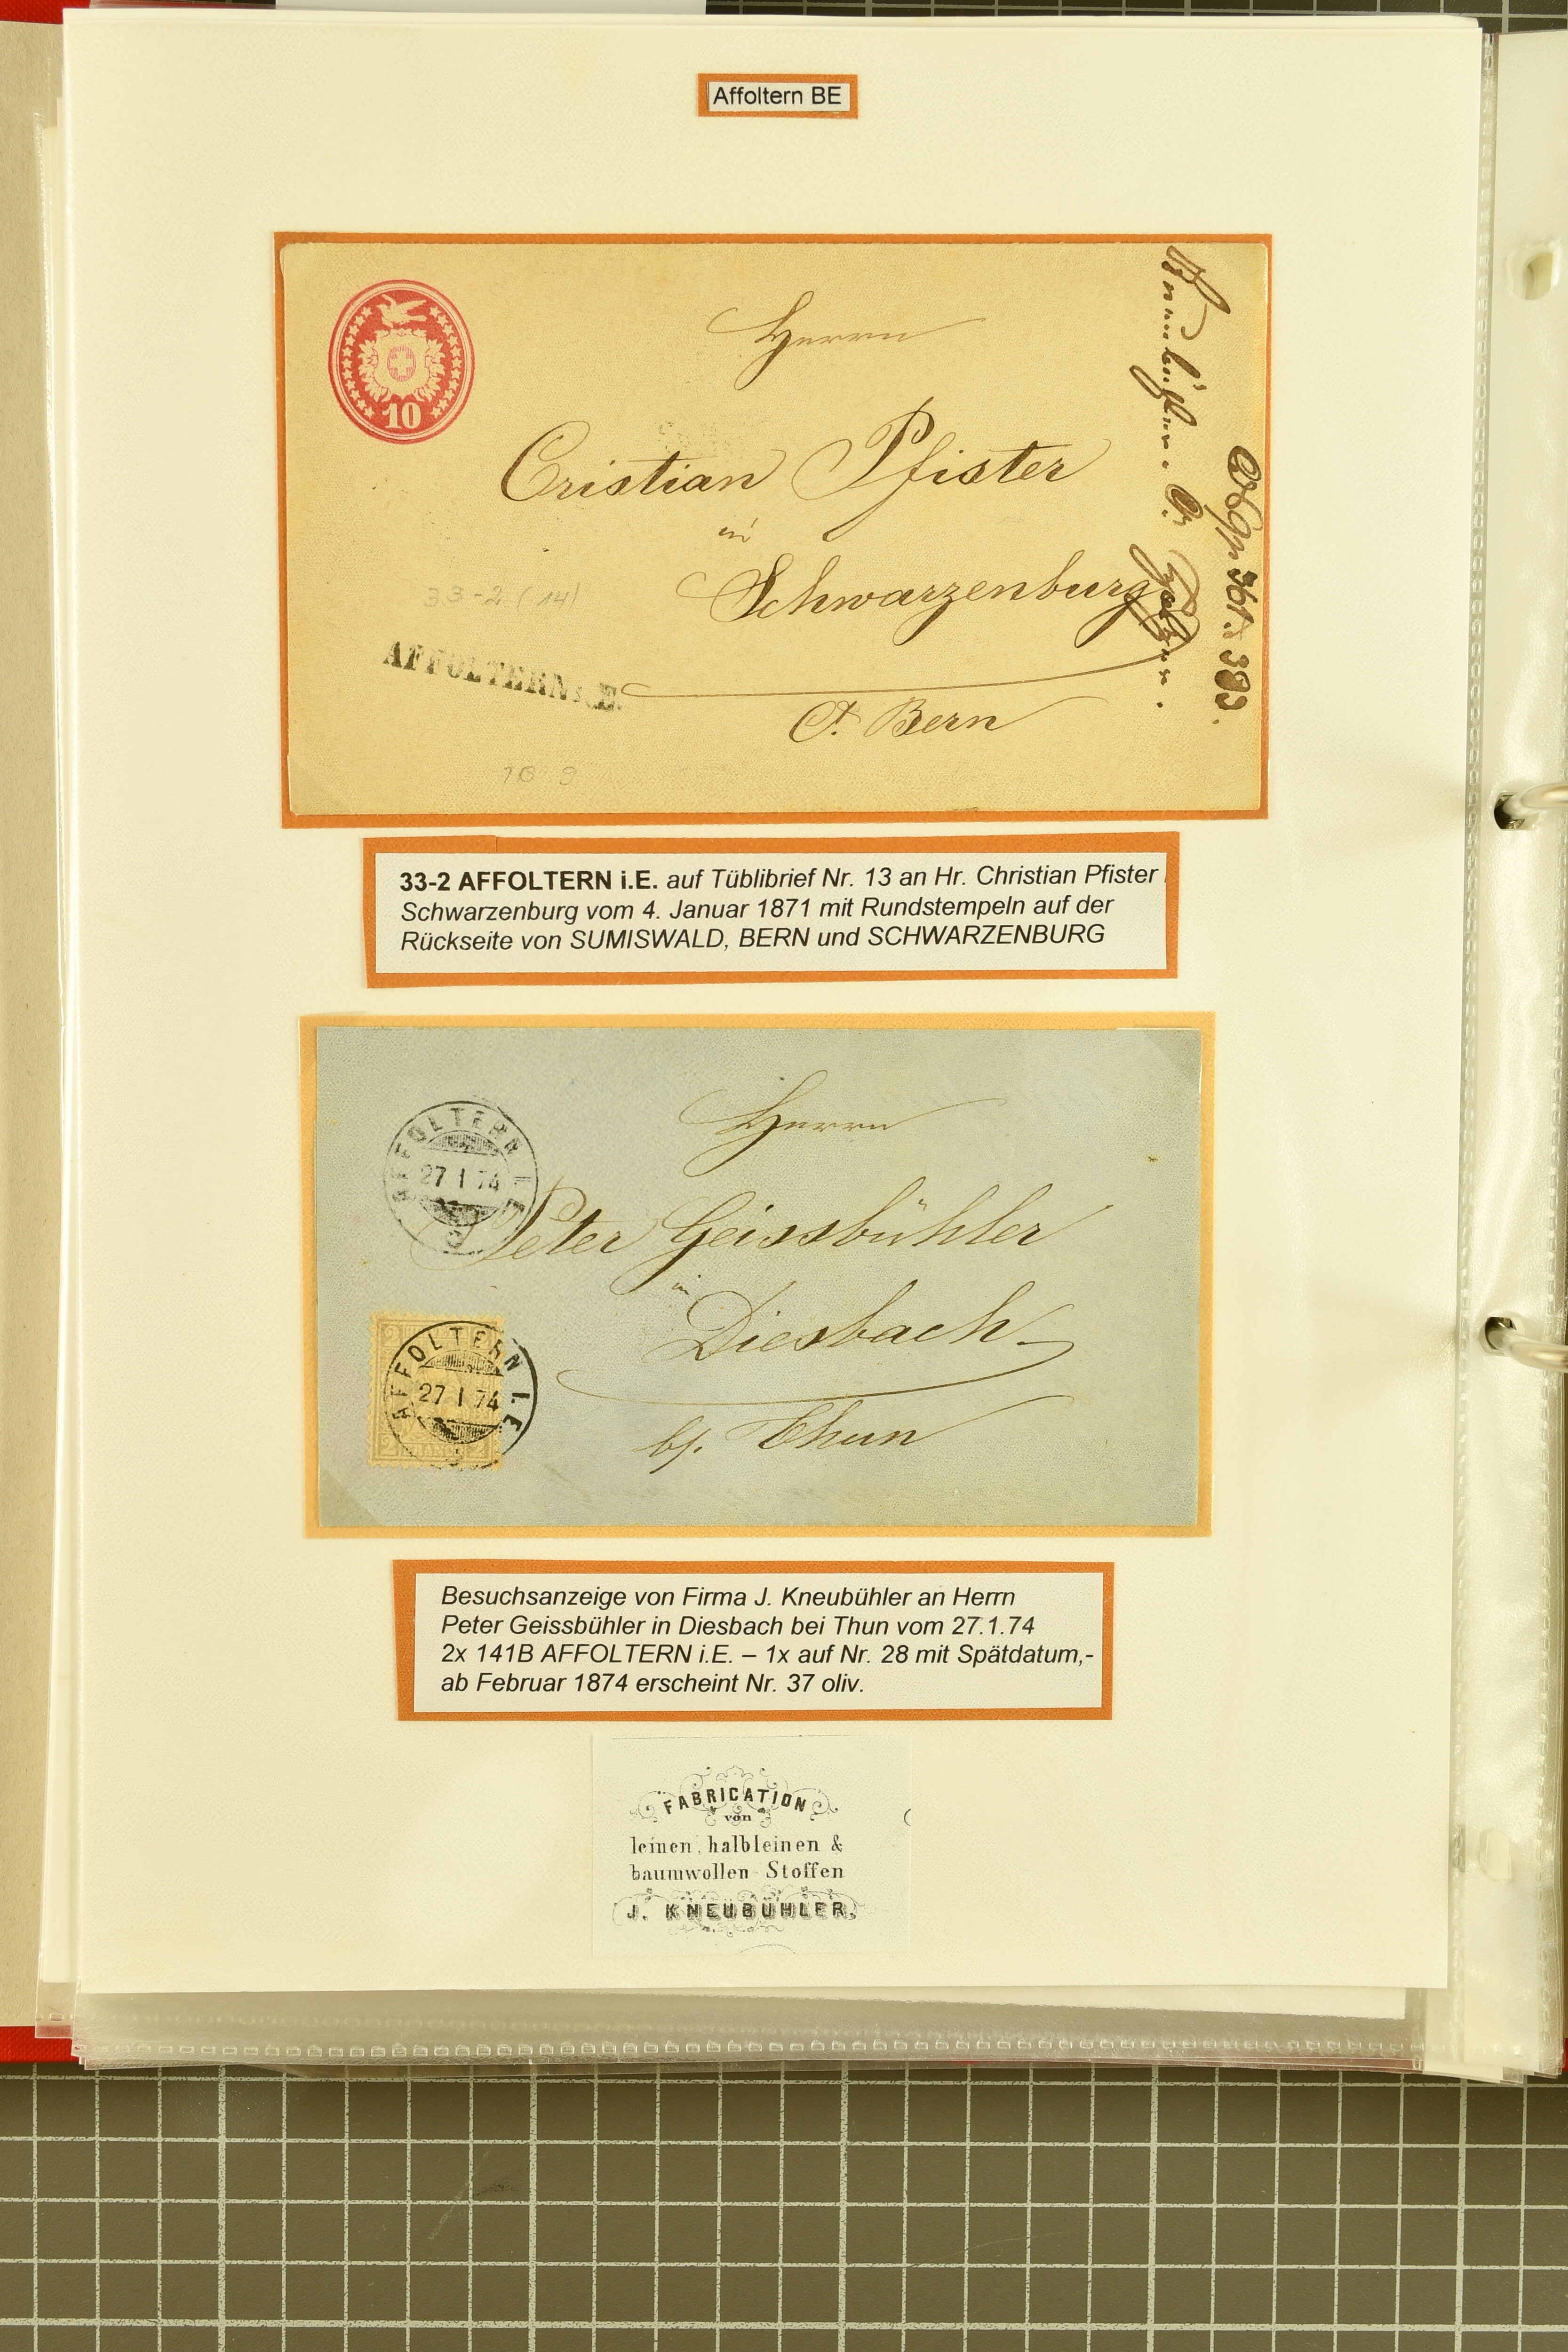 Affoltern BE
10
Herrn
Cristian Pfister
in
Schwarzenburg
Ct. Bern
33-2 (14)
AFFOLTERN i. E.
33-2 AFFOLTERN i.E. auf Tüblibrief Nr. 13 an Hr. Christian Pfister
Schwarzenburg vom 4. Januar 1871 mit Rundstempeln auf der
Rückseite von SUMISWALD, BERN und SCHWARZENBURG
Herrn
AFFOLTERN I. E
27 I 74
Peter Geissbühler
in
Diesbach
AFFOLTERN I. E
27 I 74
2 2
b/. Thun
Besuchsanzeige von Firma J. Kneubühler an Herrn
Peter Geissbühler in Diesbach bei Thun vom 27.1.74
2x 141B AFFOLTERN i.E. – 1x auf Nr. 28 mit Spätdatum,-
ab Februar 1874 erscheint Nr. 37 oliv.
FABRICATION
von
leinen, halbleinen &
baumwollen-Stoffen
J. KNEUBÜHLER.